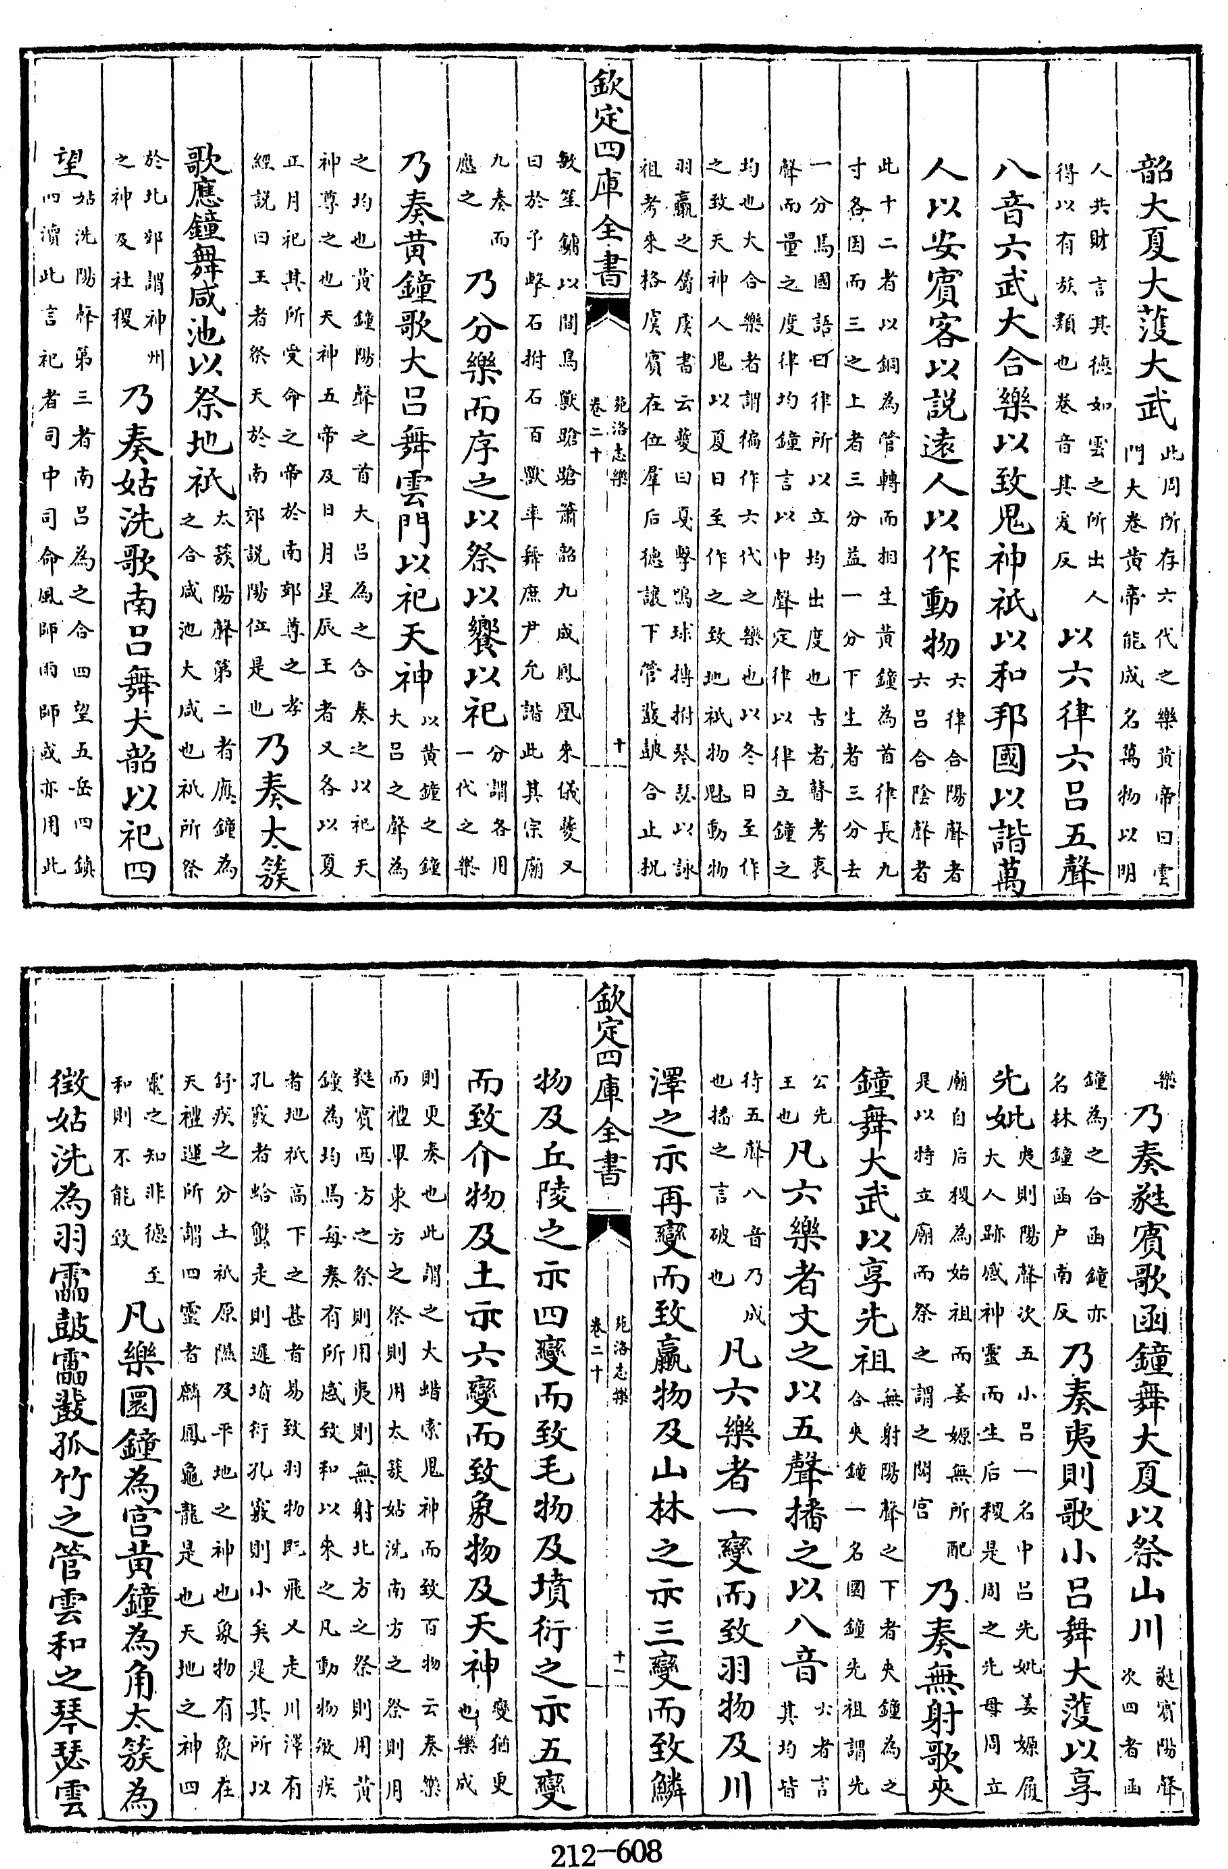 韶大夏大濩大武此周所存六代之樂黄帝曰雲
門大卷黄帝能成名萬物以明
人共財言其德如雲之所出人
得以有族類也卷音其爰反以六律六吕五聲
八音六武大合樂以致鬼神祇以和邦國以諧萬
人以安賓客以説遠人以作動物六律合陽聲者
六吕合陰聲者
此十二者以銅為管轉而相生黄鐘為首律長九
寸各因而三之上者三分益一分下生者三分去
一分焉國語曰律所以立均出度也古者瞽考衷
聲而量之度律均鐘言以中聲定律以律立鐘之
均也大合樂者謂徧作六代之樂也以冬日至作
之致天神人鬼以夏日至作之致地祇物鬽動物
羽臝之屬虞書云夔曰戛擊鳴球搏拊琴瑟以詠
祖考來格虞賓在位羣后德讓下管鼗鼓合止柷
欽定四庫全書
苑洛志樂
卷二十
十
敔笙鏞以間鳥獸蹌蹌簫韶九成鳳凰來儀夔又
曰於予擊石拊石百獸率舞庶尹允諧此其宗廟
九奏而
應之乃分樂而序之以祭以饗以祀分謂各用
一代之樂
乃奏黄鐘歌大吕舞雲門以祀天神以黄鐘之鐘
大吕之聲為
之均也黄鐘陽聲之首大吕為之合奏之以祀天
神尊之也天神五帝及日月星辰王者又各以夏
正月祀其所受命之帝於南郊尊之孝
經説曰王者祭天於南郊説陽位是也乃奏太簇
歌應鐘舞咸池以祭地祇太簇陽聲第二者應鐘為
之合咸池大咸也祇所祭
於北郊謂神州
之神及社稷乃奏姑洗歌南吕舞大韶以祀四
望姑洗陽聲第三者南吕為之合四望五岳四鎮
四瀆此言祀者司中司命風師雨師或亦用此
樂乃奏蕤賓歌函鐘舞大夏以祭山川蕤賓陽聲
次四者函
鐘為之合函鐘亦
名林鐘函户南反乃奏夷則歌小吕舞大濩以享
先妣夷則陽聲次五小吕一名中吕先妣姜嫄履
大人跡感神靈而生后稷是周之先母周立
廟自后稷為始祖而姜嫄無所配
是以特立廟而祭之謂之閟宫乃奏無射歌夾
鐘舞大武以享先祖無射陽聲之下者夾鐘為之
合夾鐘一名圜鐘先祖謂先
公先
王也凡六樂者文之以五聲播之以八音六者言
其均皆
待五聲八音乃成
也播之言破也凡六樂者一變而致羽物及川
澤之示再變而致臝物及山林之示三變而致鱗
欽定四庫全書
苑洛志樂
卷二十
十一
物及丘陵之示四變而致毛物及墳衍之示五變
而致介物及土示六變而致象物及天神變猶更
也樂成
則更奏也此謂之大蜡索鬼神而致百物云奏樂
而禮畢東方之祭則用太簇姑洗南方之祭則用
蕤賓西方之祭則用夷則無射北方之祭則用黄
鐘為均焉每奏有所感致和以來之凡動物敏疾
者地祇高下之甚者易致羽物既飛又走川澤有
孔竅者蛤蟹走則遲墳衍孔竅則小矣是其所以
舒疾之分土祇原隰及平地之神也象物有象在
天禮運所謂四靈者麟鳳龜龍是也天地之神四
靈之知非德至
和則不能致凡樂圜鐘為宫黄鐘為角太簇為
徵姑洗為羽靁鼓靁鼗孤竹之管雲和之琴瑟雲
212-608